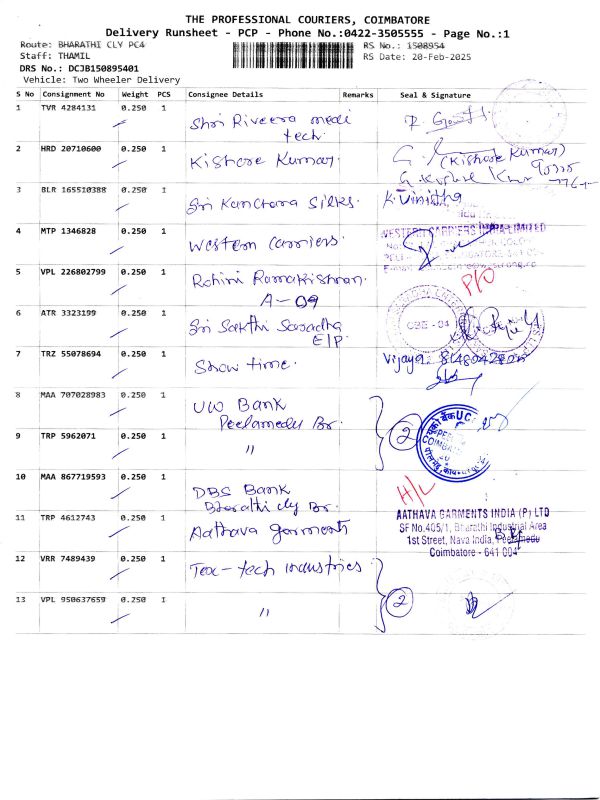 THE PROFESSIONAL COURIERS, COIMBATORE
Delivery Runsheet - PCP - Phone No.:0422-3505555 - Page No.:1
Route: BHARATHI CLY PC4
RS No.: 1508954
Staff: THAMIL
RS Date: 20-Feb-2025
DRS No.: DCJB150895401
Vehicle: Two Wheeler Delivery
S No Consignment No Weight PCS Consignee Details Remarks Seal & Signature
1 TVR 4284131 0.250 1 Shri Riveera medi
tech.
2 HRD 20710600 0.250 1 Kishore Kumar.
(Kishore Kumar)
3 BLR 165510388 0.250 1 Sri Kanchana Silks. K. Vinitha
4 MTP 1346828 0.250 1 Western Carriers.
WESTERN CARRIERS INDIA LIMITED
5 VPL 226802799 0.250 1 Rohini Ramakrishnan.
A-09
P/O
6 ATR 3323199 0.250 1 Sri Sakthi Saradha
E/P.
CBE - 04
7 TRZ 55078694 0.250 1 Show time. Vijaya.
8 MAA 707028983 0.250 1 UCO Bank
Peelamedu Br.
2
9 TRP 5962071 0.250 1 "
10 MAA 867719593 0.250 1 DBS Bank
Bharathi cly Br.
H/L
11 TRP 4612743 0.250 1 Aathava garments
AATHAVA GARMENTS INDIA (P) LTD
SF No.405/1, Bharathi Industrial Area
1st Street, Nava India, Peelamedu
Coimbatore - 641 004
12 VRR 7489439 0.250 1 Tex-tech industries.
2
13 VPL 950637659 0.250 1 "